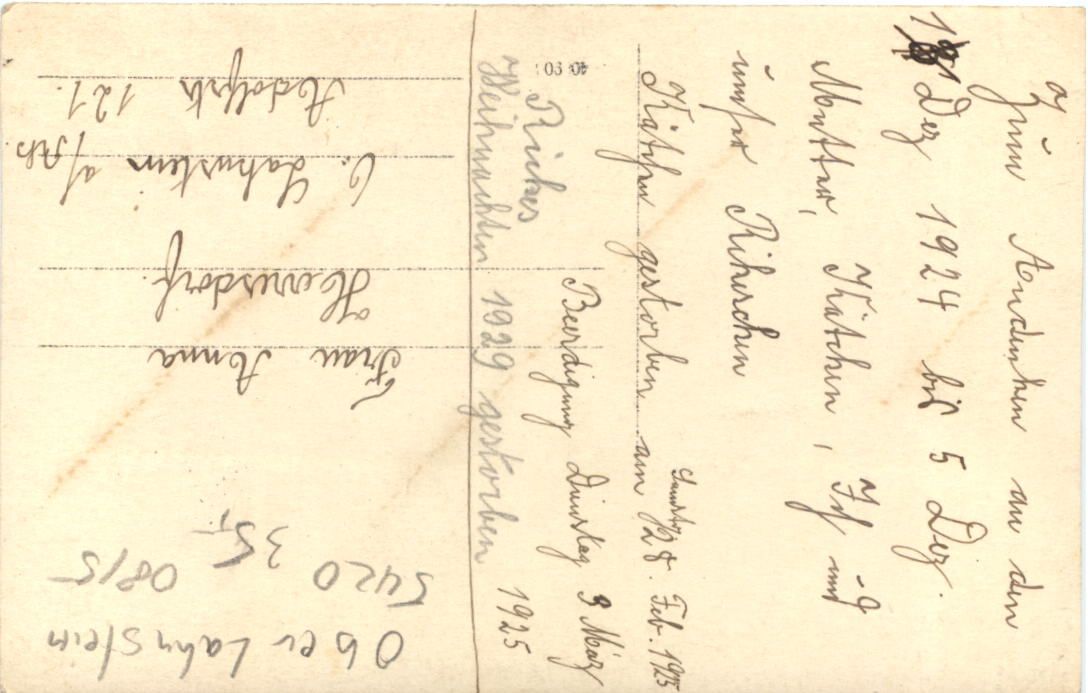 Zum Andenken an den
1 Dez 1924 bis 5 Dez.
Mutter, Kätchen, Ich und
unser
Kätchen gestorben am Samstag 28. Feb. 1925
Beerdigung Dienstag 3 März
1925
Weihnachten 1929 gestorben
Frau Anna
O. Lahnstein a/Rh.
Adolfstr 121.
Ober Lahnstein
5420 0815
35,-